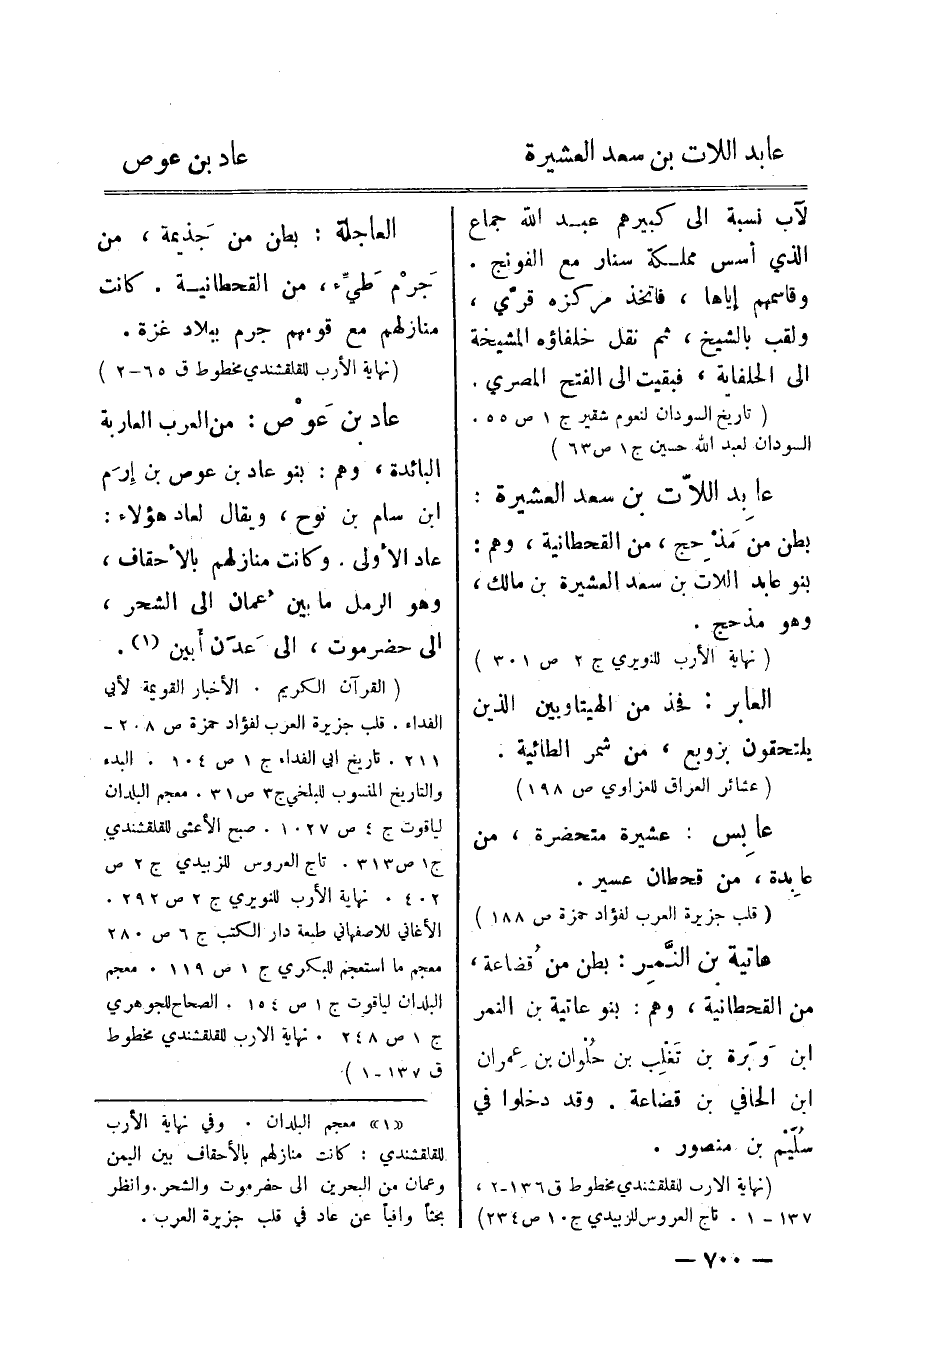 عابد اللات بن سعد العشيرة
عاد بن عوص
لآب نسبة الى كبيرهم عبد الله جماع
الذي أسس مملكة سنار مع الفونج .
وقاسمهم إياها ، فاتخذ مركزه قرّي ،
ولقب بالشيخ ، ثم نقل خلفاؤه المشيخة
الى الحلفاية ، فبقيت الى الفتح المصري .
( تاريخ السودان لنعوم شقير ج ١ ص ٥٥ .
السودان لعبد الله حسين ج ١ ص ٦٣ )
عابِد اللاّت بن سعد العشيرة :
بطن من مَذْحِج ، من القحطانية ، وهم :
بنو عابد اللات بن سعد العشيرة بن مالك ،
وهو مذحج .
( نهاية الأرب للنويري ج ٢ ص ٣٠١ )
العابر : فخذ من الهيتاويين الذين
يلتحقون بزوبع ، من شمر الطائية .
( عشائر العراق للعزاوي ص ١٩٨ )
عابِس : عشيرة متحضرة ، من
عابِدة ، من قحطان عسير .
( قلب جزيرة العرب لفؤاد حمزة ص ١٨٨ )
عاتية بن النَّمِر : بطن من قُضاعة ،
من القحطانية ، وهم : بنو عاتية بن النمر
ابن وَبَرة بن تَغْلِب بن حُلْوان بن عِمران
ابن الحافي بن قضاعة . وقد دخلوا في
سُلَيْم بن منصور .
( نهاية الارب للقلقشندي مخطوط ق ١٣٦-٢ ،
١٣٧ - ١ . تاج العروس للزبيدي ج ١٠ ص ٢٣٤ )
العاجلة : بطن من جَذيمة ، من
جَرْم طَيِّء ، من القحطانية . كانت
منازلهم مع قومهم جرم ببلاد غزة .
( نهاية الأرب للقلقشندي مخطوط ق ٦٥-٢ )
عاد بن عَوْص : من العرب العاربة
البائدة ، وهم : بنو عاد بن عوص بن إرَم
ابن سام بن نوح ، ويقال لعاد هؤلاء :
عاد الأولى . وكانت منازلهم بالأحقاف ،
وهو الرمل ما بين عُمان الى الشحر ،
الى حضرموت ، الى عَدَن أبين (١) .
( القرآن الكريم . الأخبار القويمة لأبي
الفداء . قلب جزيرة العرب لفؤاد حمزة ص ٢٠٨ -
٢١١ . تاريخ ابي الفداء ج ١ ص ١٠٤ . البدء
والتاريخ المنسوب للبلخي ج ٣ ص ٣١ . معجم البلدان
لياقوت ج ٤ ص ١٠٢٧ . صبح الأعشى للقلقشندي
ج ١ ص ٣١٣ . تاج العروس للزبيدي ج ٢ ص
٤٠٢ . نهاية الأرب للنويري ج ٢ ص ٢٩٢ .
الأغاني للاصفهاني طبعة دار الكتب ج ٦ ص ٢٨٠
معجم ما استعجم للبكري ج ١ ص ١١٩ . معجم
البلدان لياقوت ج ١ ص ١٥٤ . الصحاح للجوهري
ج ١ ص ٢٤٨ . نهاية الارب للقلقشندي مخطوط
ق ١٣٧ - ١ )
«١» معجم البلدان . وفي نهاية الأرب
للقلقشندي : كانت منازلهم بالأحقاف بين اليمن
وعمان من البحرين الى حضرموت والشحر . وانظر
بحثاً وافياً عن عاد في قلب جزيرة العرب .
— ٧٠٠ —